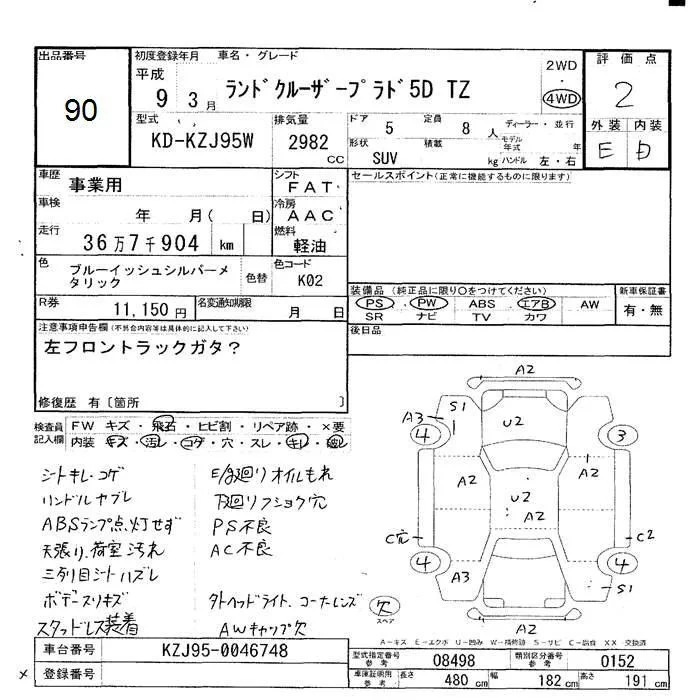 出品番号
90
初度登録年月 車名・グレード
平成
9 3月
ランドクルーザープラド5D TZ
2WD
・
4WD
評価点
2
外装 内装
E D
型式
KD-KZJ95W
排気量
2982
CC
ドア
5
定員
8人
ディーラー・並行
モデル年式 年
形状
SUV
積載
kg
ハンドル 左・右
車歴
事業用
シフト
FAT
車検
年 月( 日)
冷房
AAC
走行
36万7千904 km
燃料
軽油
色
ブルーイッシュシルバーメタリック
色替
色コード
K02
R券
11,150円
名変通知期限
月 日
セールスポイント(正常に機能するものに限ります)
装備品 (純正品に限り○をつけてください)
PS・PW ABS・エアB AW
SR ナビ TV カワ
新車保証書
有・無
後日品
注意事項申告欄(不具合内容等は具体的に記入して下さい)
左フロントラックガタ?
修復歴 有〔箇所 〕
検査員記入欄
FW キズ・飛石・ヒビ割・リペア跡・×要
内装 キズ・汚レ・コゲ・穴・スレ・キレ・破レ
シートキレ・コゲ
ハンドルヤブレ
ABSランプ点灯せず
天張り、荷室汚れ
三列目シートハズレ
ボデースリキズ
スタッドレス装着
E/g廻りオイルもれ
下廻りフショク穴
PS不良
AC不良
外ヘッドライト、コーナーレンズ
AWキャップ欠
A2
S1
A3
4
U2
3
A2
U2
A2
A2
C穴
C2
4
4
A3
S1
A2
欠
スペア
A-キズ E-エクボ U-凹み W-補修跡 S-サビ C-腐食 XX 交換済
車台番号
KZJ95-0046748
登録番号
×
型式指定番号 参考
08498
類別区分番号 参考
0152
車庫証明用 参考
長さ 480cm
幅 182cm
高さ 191cm